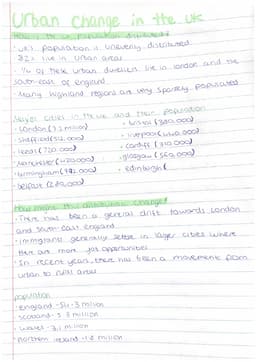 Urban change in the UK
How is the UK population distributed?
· UK's population is unevenly distributed.
82% live in urban areas
· 1/4 of these urban dwellers live in london and the
south-east of england.
· Many highland regions are very sparsely populated
Major cities in the uk and their population
· London (7.3 million)
· Sheffield (512,000)
· Leeds (720,000)
· Manchester (420,000)
· birmingham (992,000)
· belfast (280,000)
· bristol (380,000)
· liverpool (440,000)
· cardiff (310,000)
· glasgow (560,000)
· edinburgh (
How has this distribution changed?
· There has been a general drift towards London
and south east england
· immigrants generally settle in larger cities where
there are more job opportunities
· In recent years, there has been a movement from
urban to rural areas
population
· england - 54.3 million
· scotland - 5.3 million
· wales - 3.1 million
· northern ireland - 1.8 million